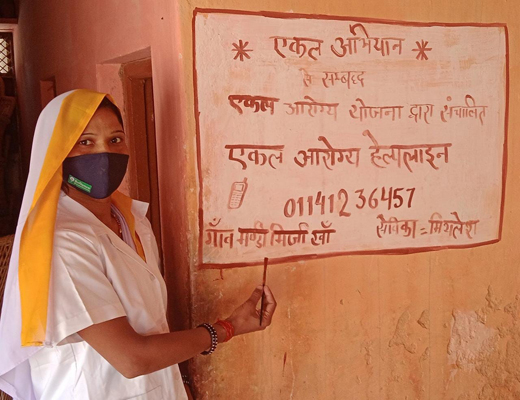 * एकल अभियान *
से सम्बद्ध
एकल आरोग्य योजना द्वारा संचालित
एकल आरोग्य हेल्पलाइन
01141236457
गाँव मण्डी मिर्जा खाँ सेविका = मिथलेश